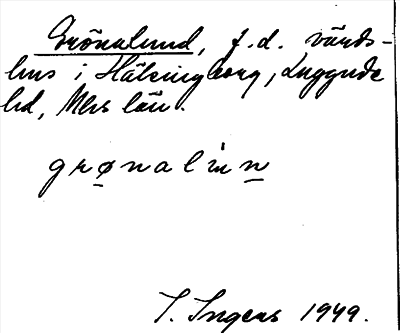 Grönalund, f.d. värds-
hus i Hälsingborg, Luggude
hd, Mhs län.
grønalinn
I. Ingers 1949.